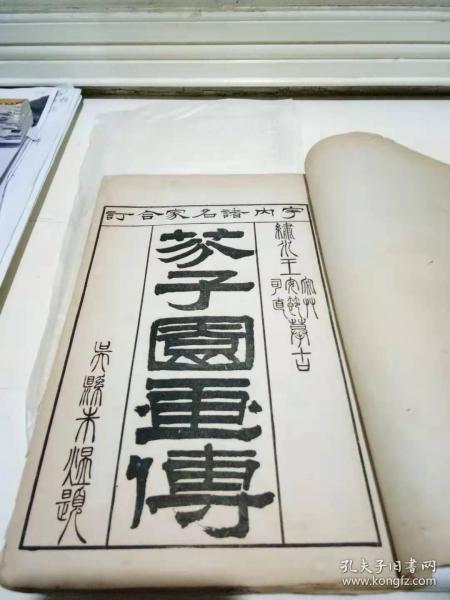 宇内諸名家合訂
繡水王宓艸安節司直摹古
芥子園畫傳
吳縣朱題
孔夫子旧書网
www.kongfz.com